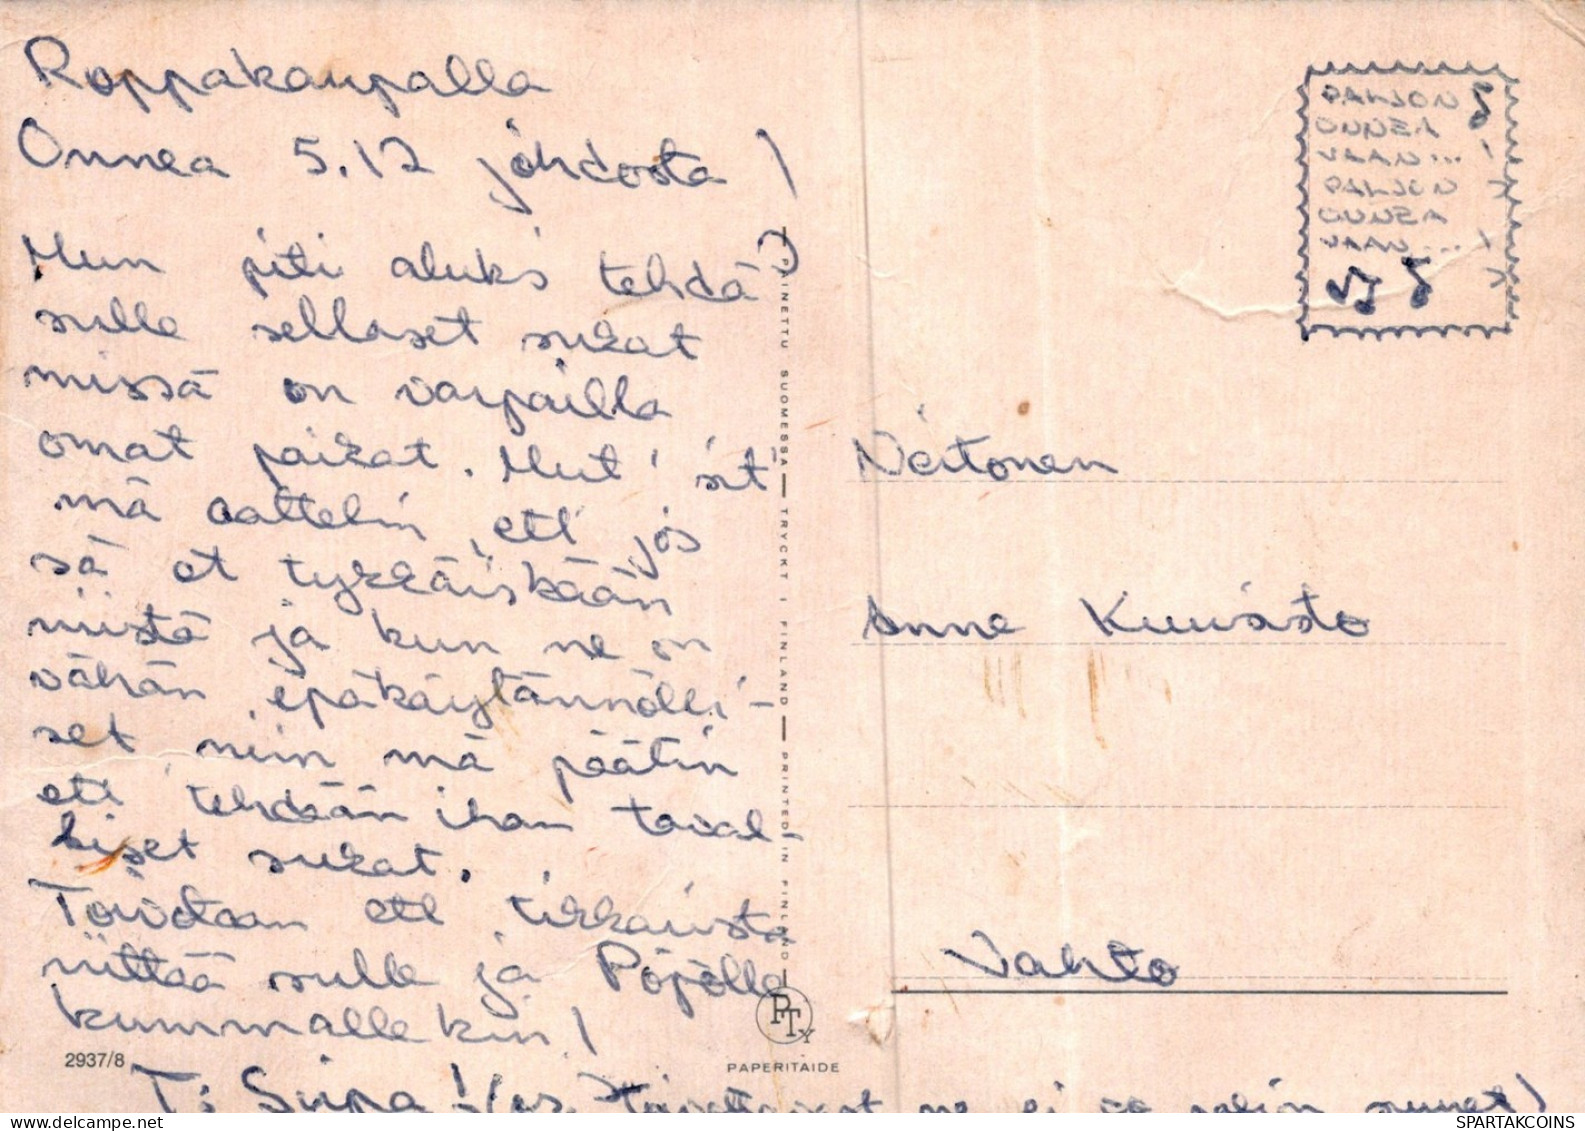 Roppakaupalla
Onnea 5.12 johdosta!
Mun piti aluks tehdä
sulle sellaset sukat
missä on varpailla
omat paikat. Mut' sit'
mä aattelin, ett' jos
sä et tykkäiskään
niistä ja kun ne on
vähän epäkäytännölli-
set niin mä päätin
ett' tehdään ihan taval-
liset sukat.
Toivotaan ett' tikkaristä
riittää sulle ja Pöpölle
kummallekin!
T: Siipa! ne ei oo
2937/8
PAINETTU SUOMESSA — TRYCKT I FINLAND — PRINTED IN FINLAND
PTY
PAPERITAIDE
PALJON
ONNEA
VAAN...
PALJON
ONNEA
VAAN...
Neitonen
Anne Kuuisto
Vahto
SPARTAKCOINS